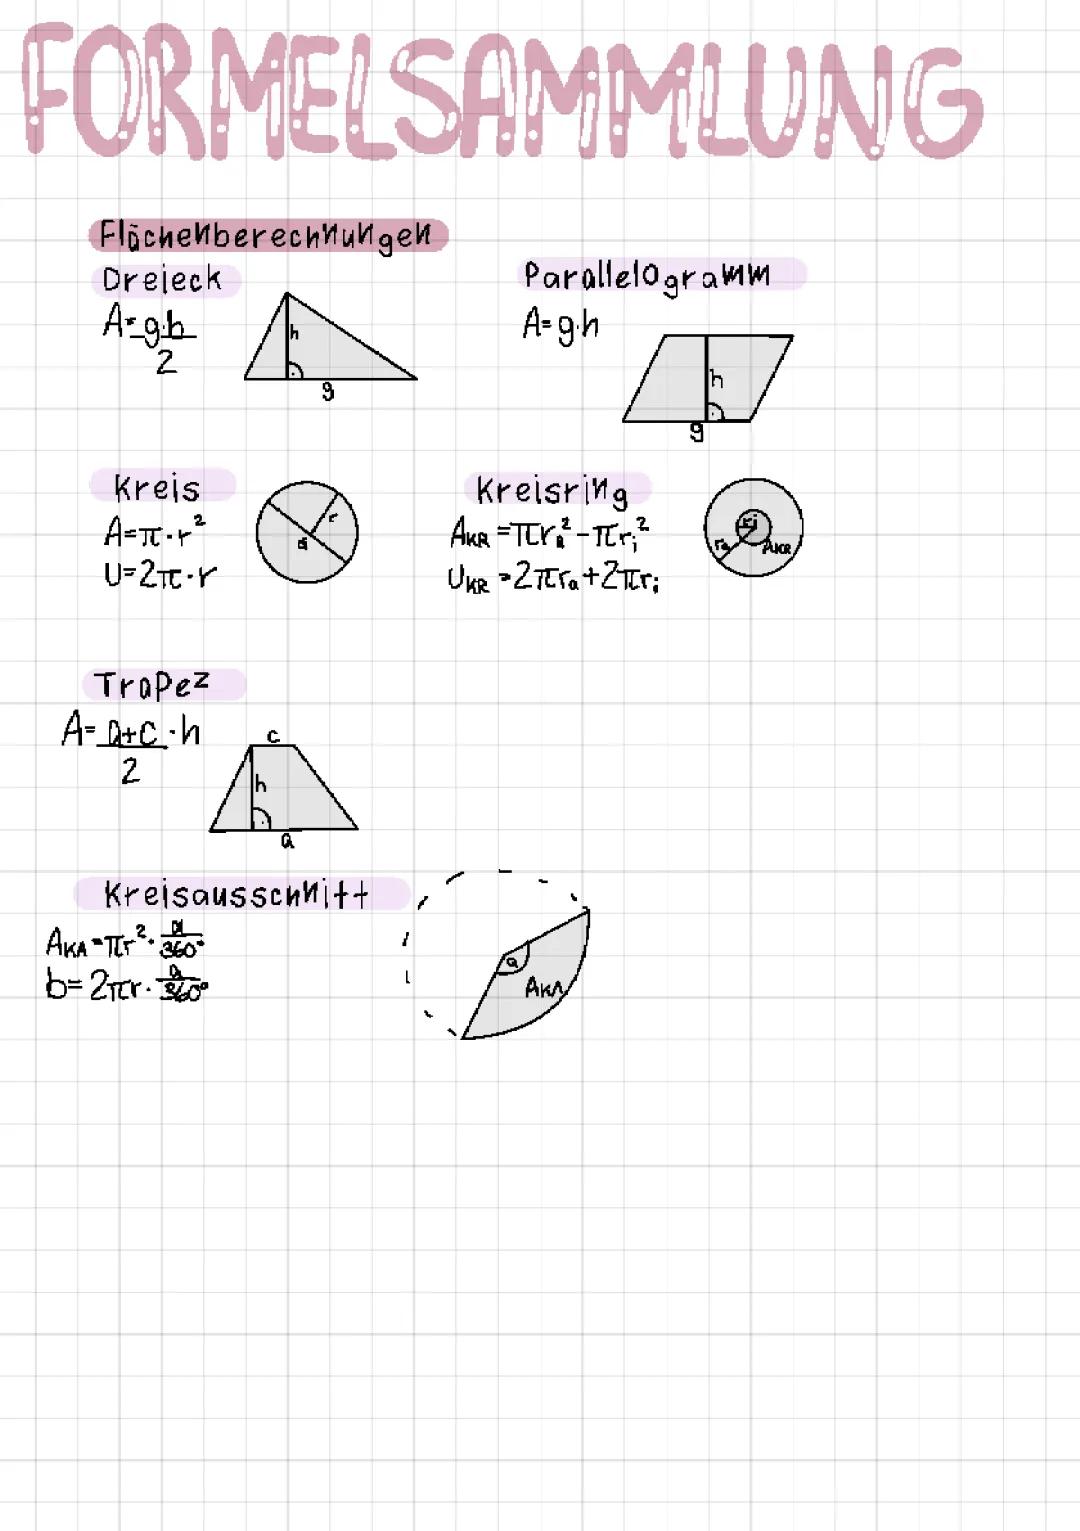 FORMELSAMMLUNG
Flächenberechnungen
Dreieck
A=g·h
2
h
g
Parallelogramm
A=g·h
h
g
Kreis
A=π·r²
U=2π·r
r
d
Kreisring
AKR=πra²-πri²
UKR=2πra+2πri
ri
ra
AKR
Trapez
A=a+c·h
2
c
h
a
Kreisausschnitt
AKA=πr²·α/360°
b=2πr·α/360°
α
AKA